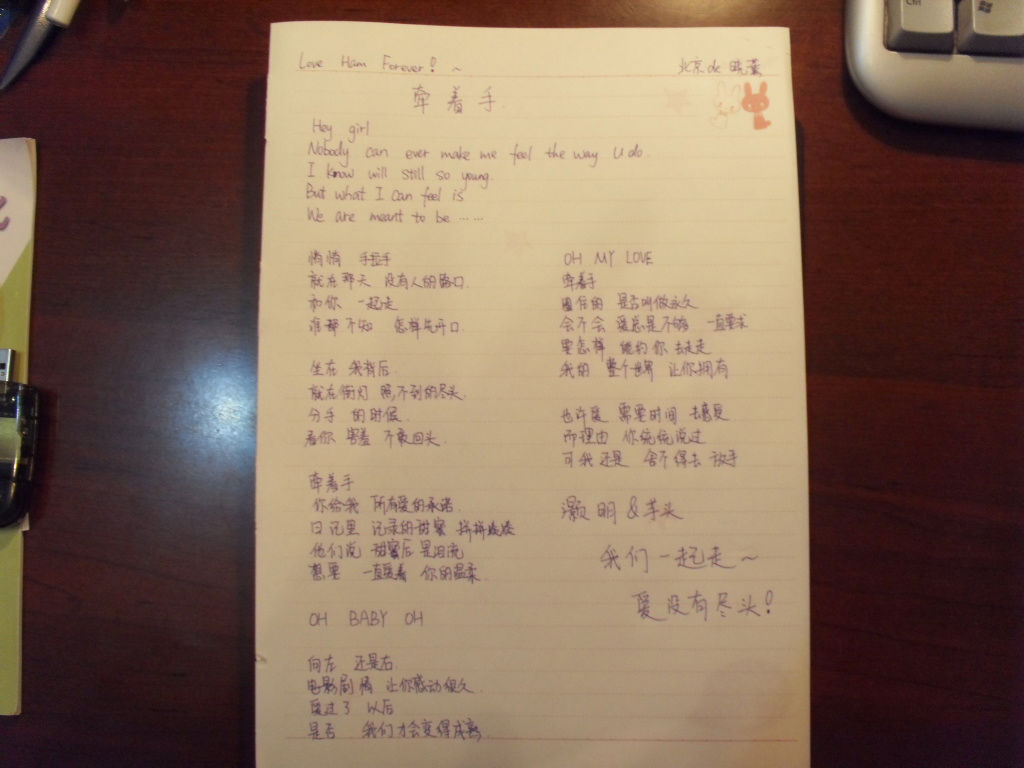 Love Ham Forever! ~
北京de 晓萱
牵着手.
Hey girl
Nobody can ever make me feel the way u do.
I know will still so young.
But what I can feel is
We are meant to be ……
悄悄 手拉手
就在那天 没有人的路口.
和你 一起走
谁都不知 怎样先开口.
坐在 我背后.
就在街灯 照不到的尽头.
分手 的时候.
看你 害羞 不敢回头.
牵着手
你给我 所有爱的承诺.
日记里 记录的甜蜜 拼拼凑凑
他们说 甜蜜后是泪流
想要 一直握着 你的温柔.
OH BABY OH
向左 还是右
电影剧情 让你感动很久.
爱过了 以后
是否 我们才会变得成熟.
OH MY LOVE
牵着手
圈住的 是否叫做永久
会不会 爱总是不够 一直要求
要怎样 能约你 去走走
我的 整个世界 让你拥有
也许爱 需要时间 去感受
而理由 你统统说过
可我还是 舍不得去 放手
灏明&芋头
我们一起走~
爱没有尽头!
Ctrl